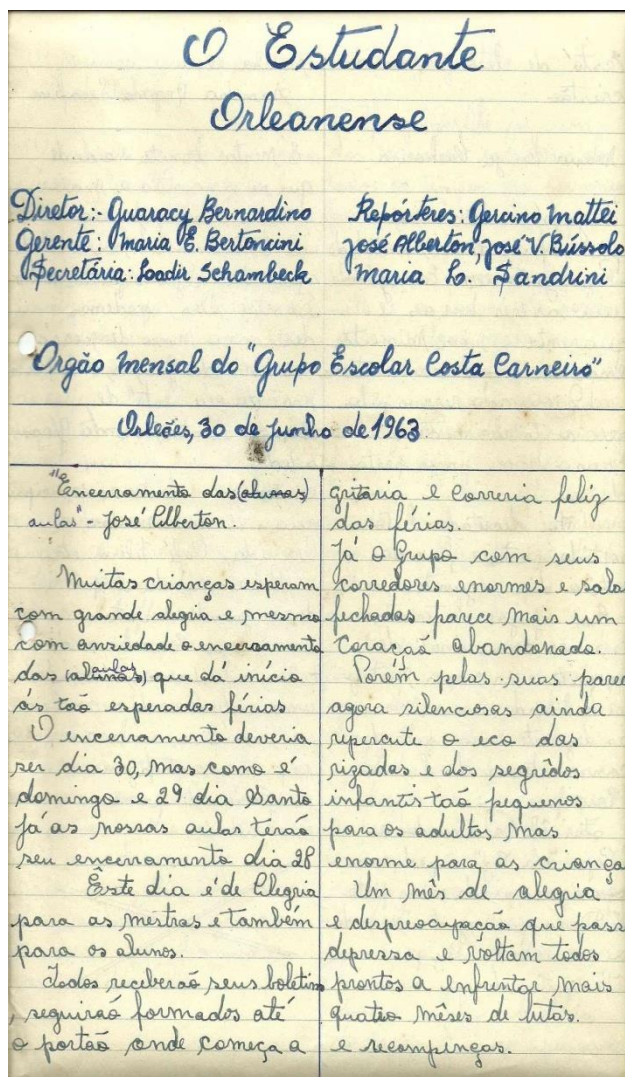 O Estudante
Orleanense
Diretor:- Guaracy Bernardino
Gerente: Maria E. Bertoncini
Secretária: Loadir Schambeck
Repórteres: Gercino Mattei
José Alberton, José V. Bússolo
Maria L. Sandrini
Orgão mensal do "Grupo Escolar Costa Carneiro"
Orleães, 30 de Junho de 1963.
"Encerramento das (alunas)
aulas" - José Alberton.
Muitas crianças esperam
com grande alegria e mesmo
com anziedade o encerramento
das (alunas) aulas que dá início
ás taõ esperadas férias
O encerramento deveria
ser dia 30, mas como é
domingo e 29 dia Santo
já as nossas aulas teraõ
seu encerramento dia 28
Êste dia é de Alegria
para as mestras e também
para os alunos.
Todos receberaõ seus boletins
, seguiraõ formados até
o portaõ onde começa a
gritaria e Correria feliz
das férias.
Já o Grupo com seus
corredores enormes e sala
fechadas parece mais um
Coraçaõ abandonado.
Porém pelas suas pare
agora silenciosas ainda
repercute o eco das
rizadas e dos segrêdos
infantis taõ pequenos
para os adultos mas
enorme para as criança
Um mês de alegria
e despreocupação que pass
depressa e voltam todos
prontos a enfrentar mais
quatro mêses de lutas.
e recompenças.